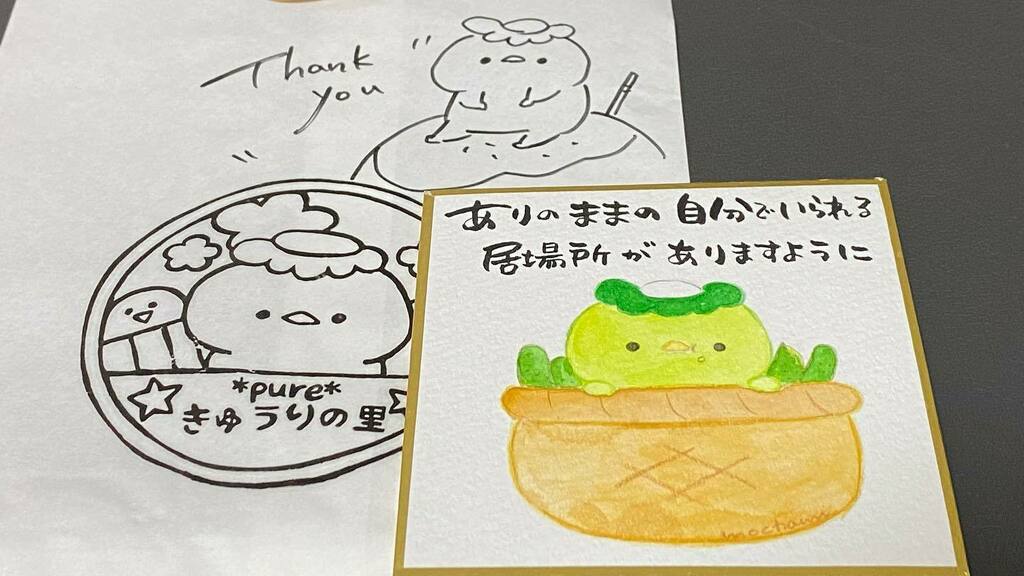 Thank
you
*pure*
きゅうりの里
ありのままの自分でいられる
居場所がありますように